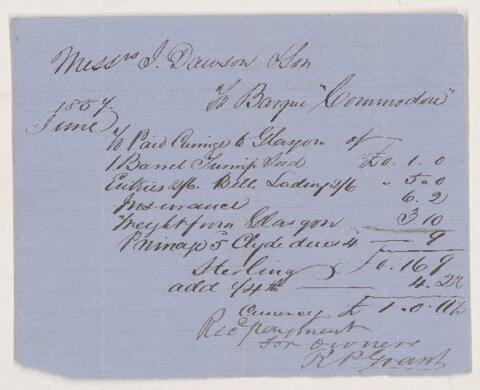 Messrs J. Dawson & Son
To Barque "Commodore"
1857.
June
To Paid Carriage to Glasgow of
1 Barrel Turnip Seed £0. 1. 0
Entries 2/6. Bill Lading 2/6 " 5 " 0
Insurance 6. 2
Freight from Glasgow 3 10
Primage 5 Clyde dues 4 9
Sterling £0. 16 9
add 1/4th 4. 2
Currency £ 1. 0. 11
Recd payment
for owners
R. P. Grant